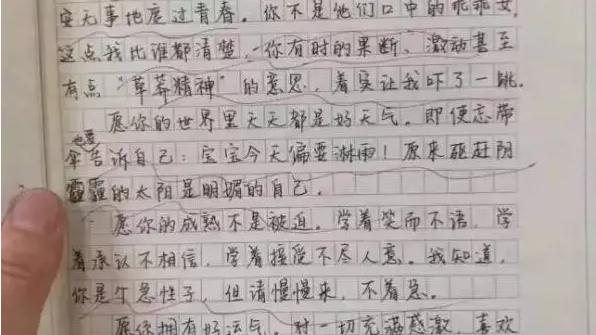 安无事地度过青春。你不是他们口中的乖乖女,
这点我比谁都清楚,你有时的果断、激动甚至
有点“草莽精神”的意思,着实让我吓了一跳。
愿你的世界里天天都是好天气。即便忘带
也要
伞告诉自己:宝宝今天偏要淋雨!原来驱赶阴
霾的太阳是明媚的自己。
愿你的成熟不是被迫。学着笑而不语,学
着承认不相信,学着接受不尽人意。我知道,
你是个急性子,但请慢慢来,不着急。
愿你拥有好运气。对一切充满感激,喜欢